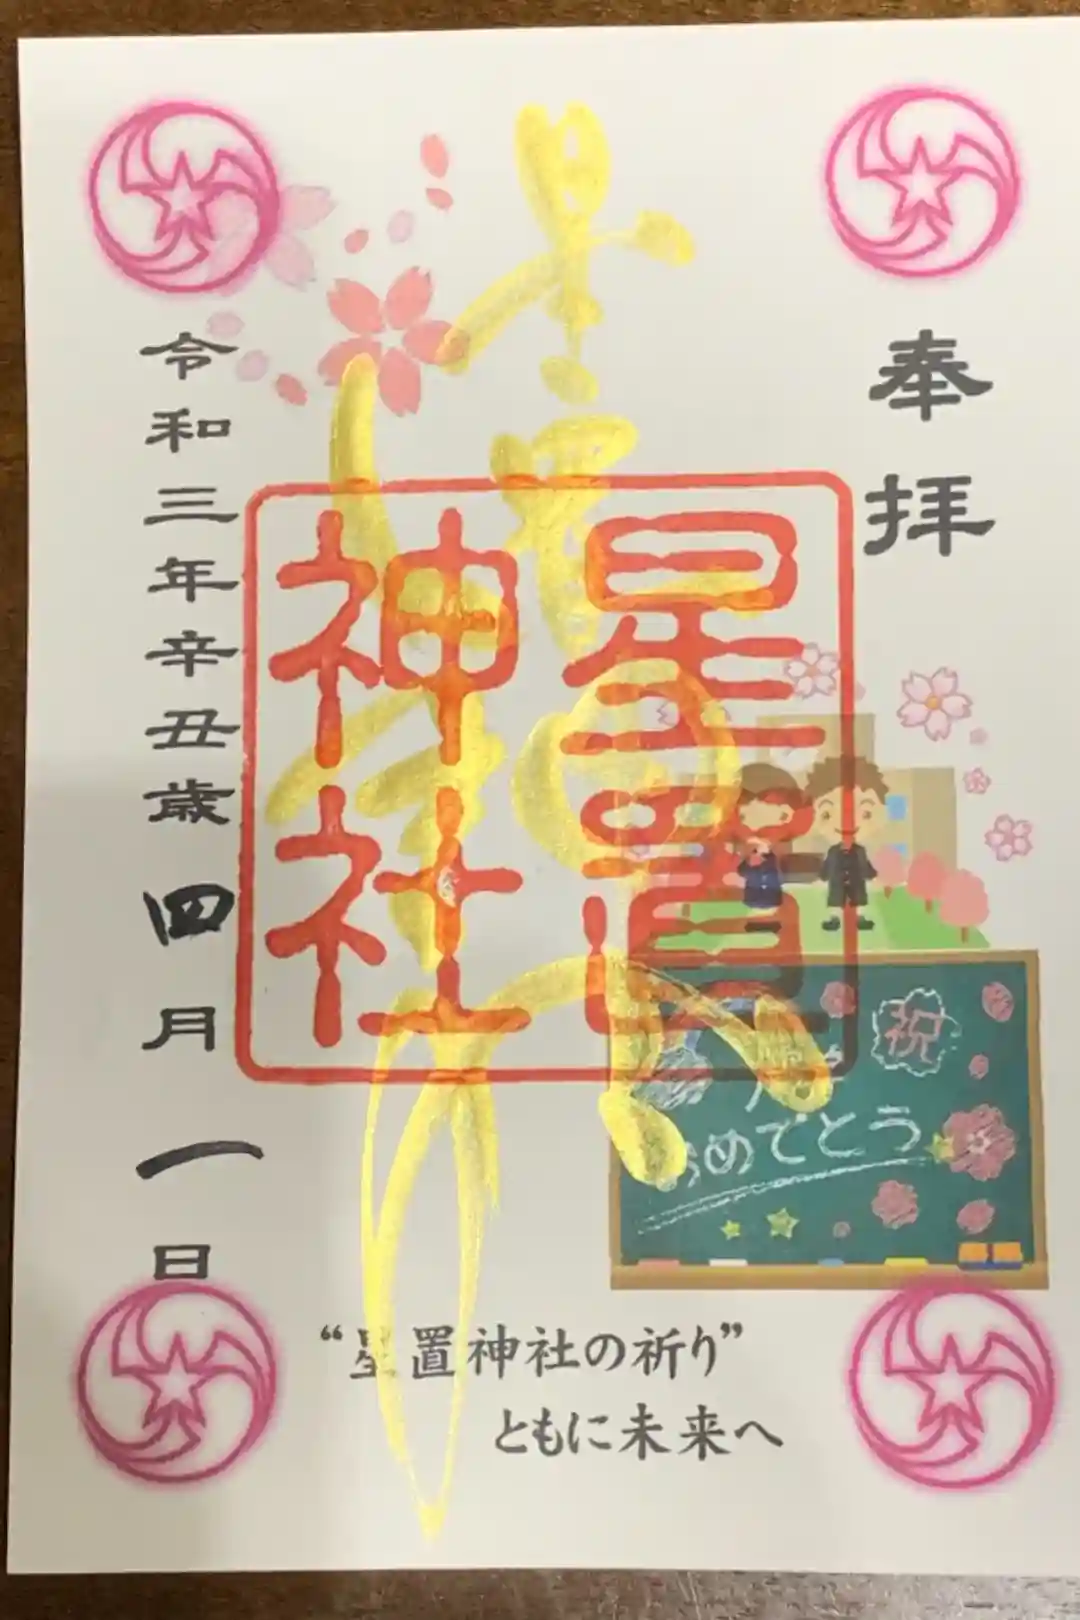 奉拝
星置神社
星置
神社
令和三年辛丑歳四月一日
祝
おめでとう
“星置神社の祈り”
ともに未来へ